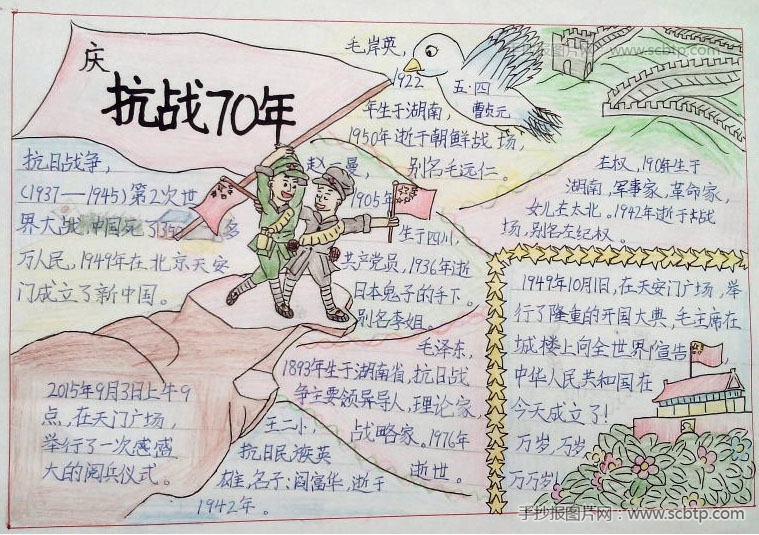 庆
抗战70年
抗日战争，
(1937—1945)第2次世
界大战中国死了35
多
万人民，1949年在北京天安
门成立了新中国。
毛岸英，
1922
年生于湖南，
1950年逝于朝鲜战场，
别名毛远仁。
五·四
曹贞元
手抄报图片网：www.scbtp.com
赵一曼，
1905年
生于四川，
共产党员，1936年逝
日本鬼子的手下。
别名李姐。
左权，190年生于
湖南，军事家，革命家，
女儿左太北。1942年逝于战
场，别名左纪权。
毛泽东，
1893年生于湖南省，抗日战
争主要领导人，理论家
战略家。1976年
逝世。
王二小，
抗日民族英
雄，名子：阎富华，逝于
1942年。
2015年9月3日上午9
点，在天门广场，
举行了一次感盛
大的阅兵仪式。
1949年10月1日，在天安门广场，举
行了隆重的开国大典，毛主席在
城楼上向全世界宣告
中华人民共和国在
今天成立了！
万岁，万岁，
万万岁！
手抄报图片网：www.scbtp.com